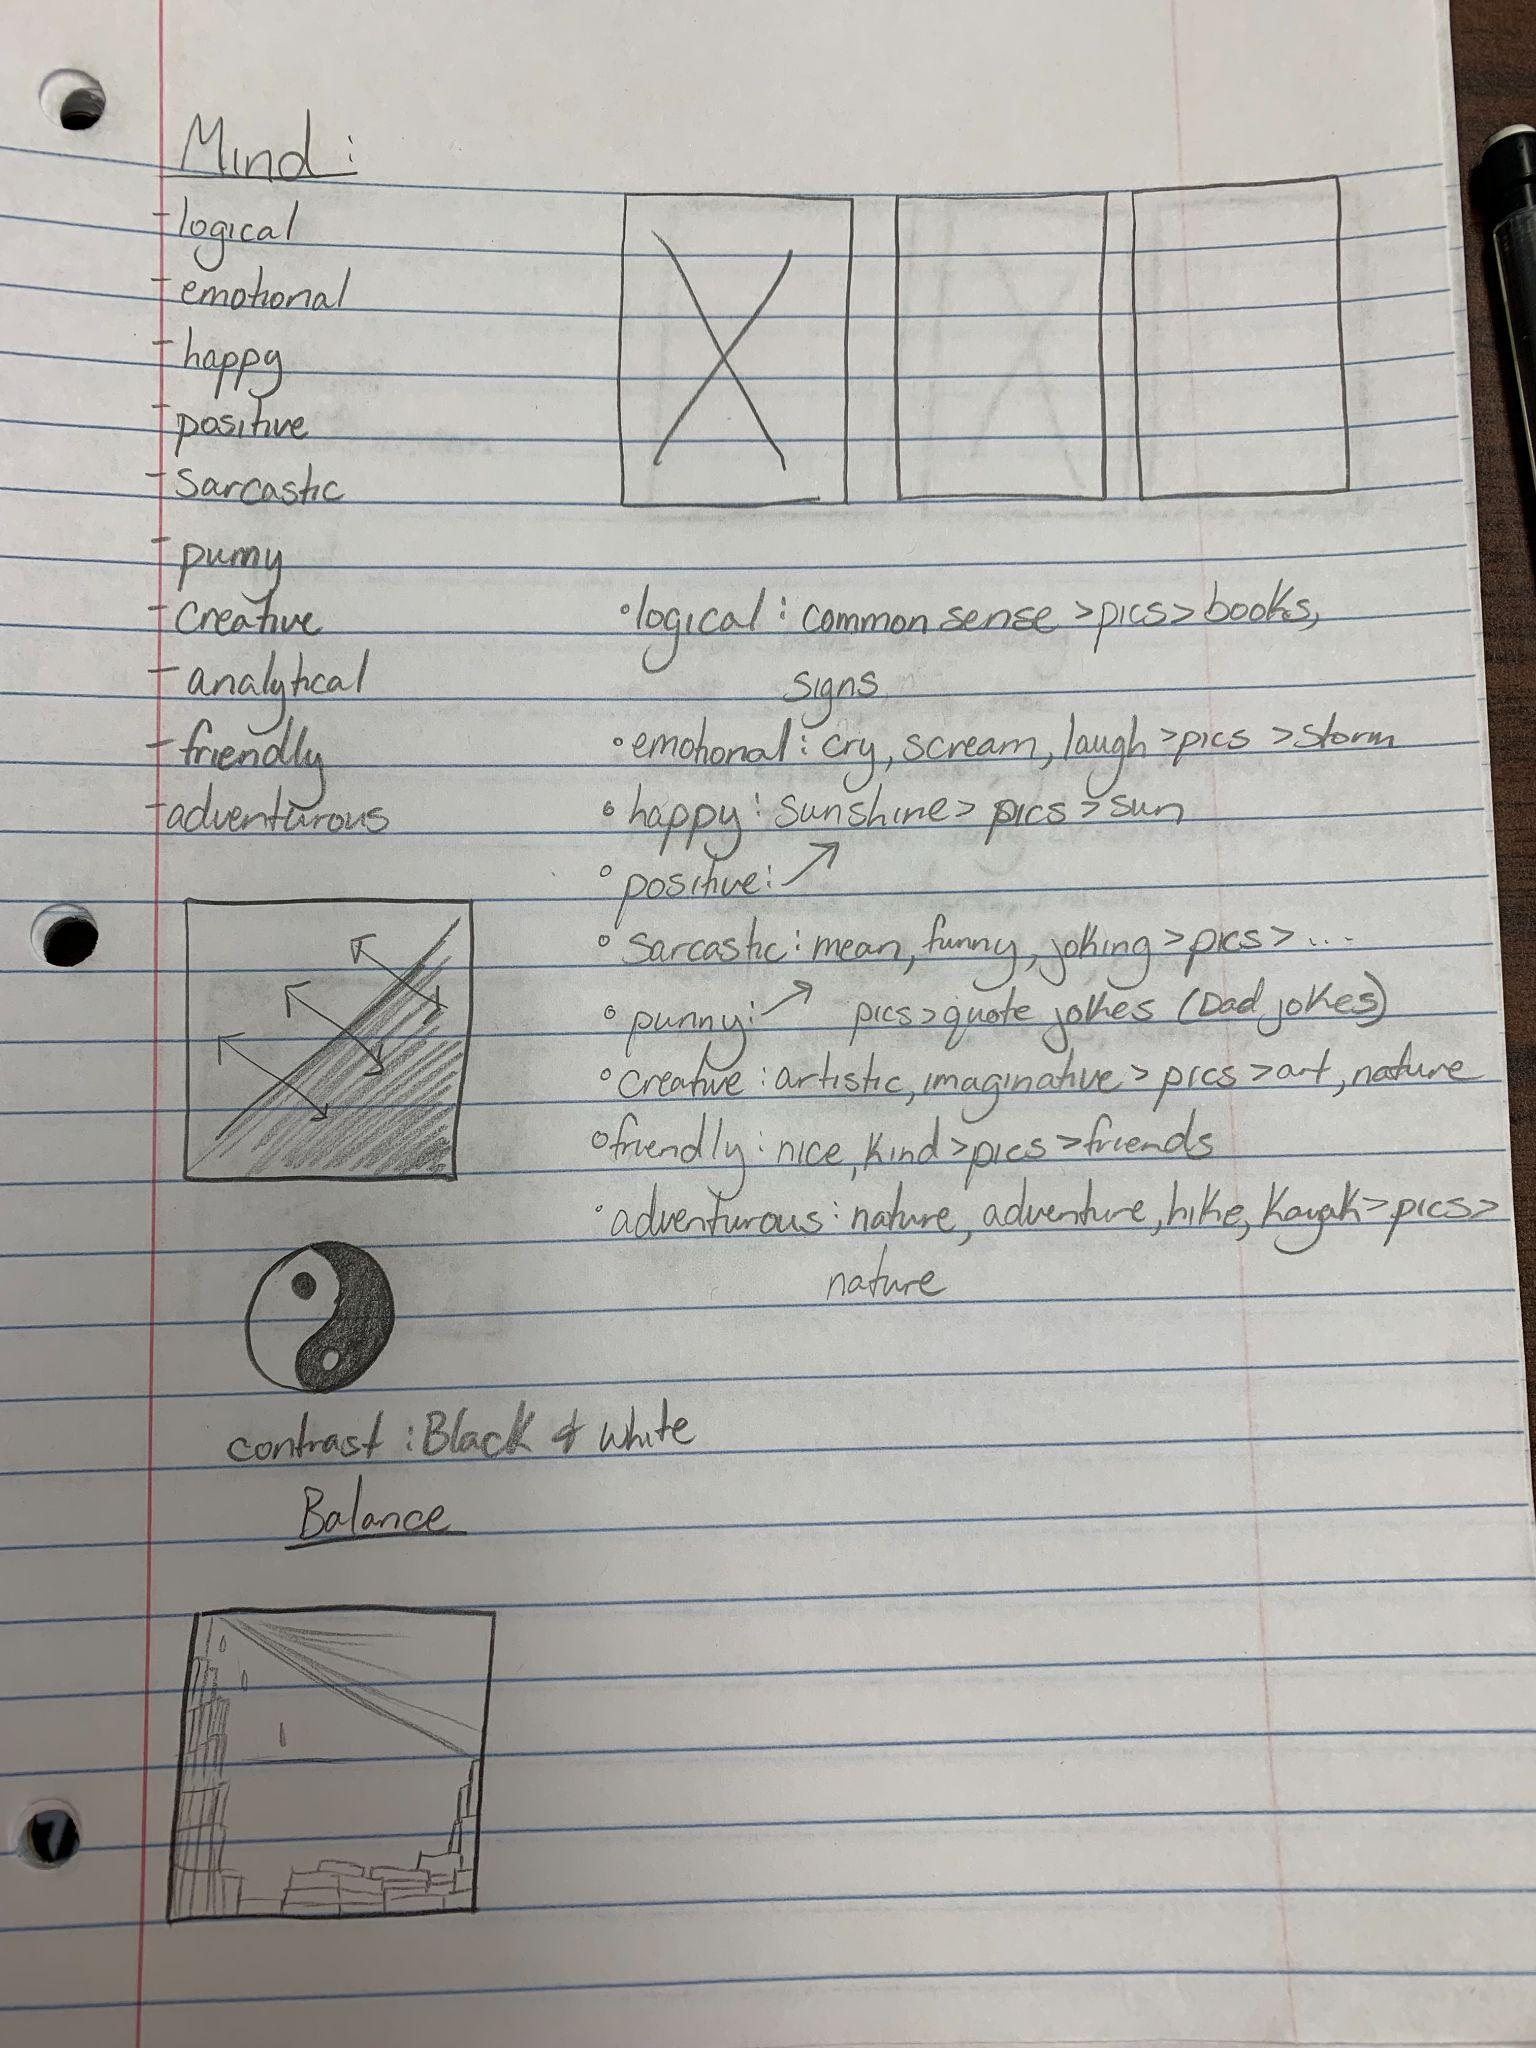 Mind:
- logical
- emotional
- happy
- positive
- Sarcastic
- punny
- Creative
- analytical
- friendly
- adventurous
• logical: common sense > pics > books,
signs
• emotional: cry, scream, laugh > pics > storm
• happy: sunshine > pics > sun
• positive: ↗
• Sarcastic: mean, funny, joking > pics > ...
• punny: ↗ pics > quote jokes (Dad jokes)
• Creative: artistic, imaginative > pics > art, nature
• friendly: nice, kind > pics > friends
• adventurous: nature, adventure, hike, kayak > pics >
nature
contrast: Black & white
Balance